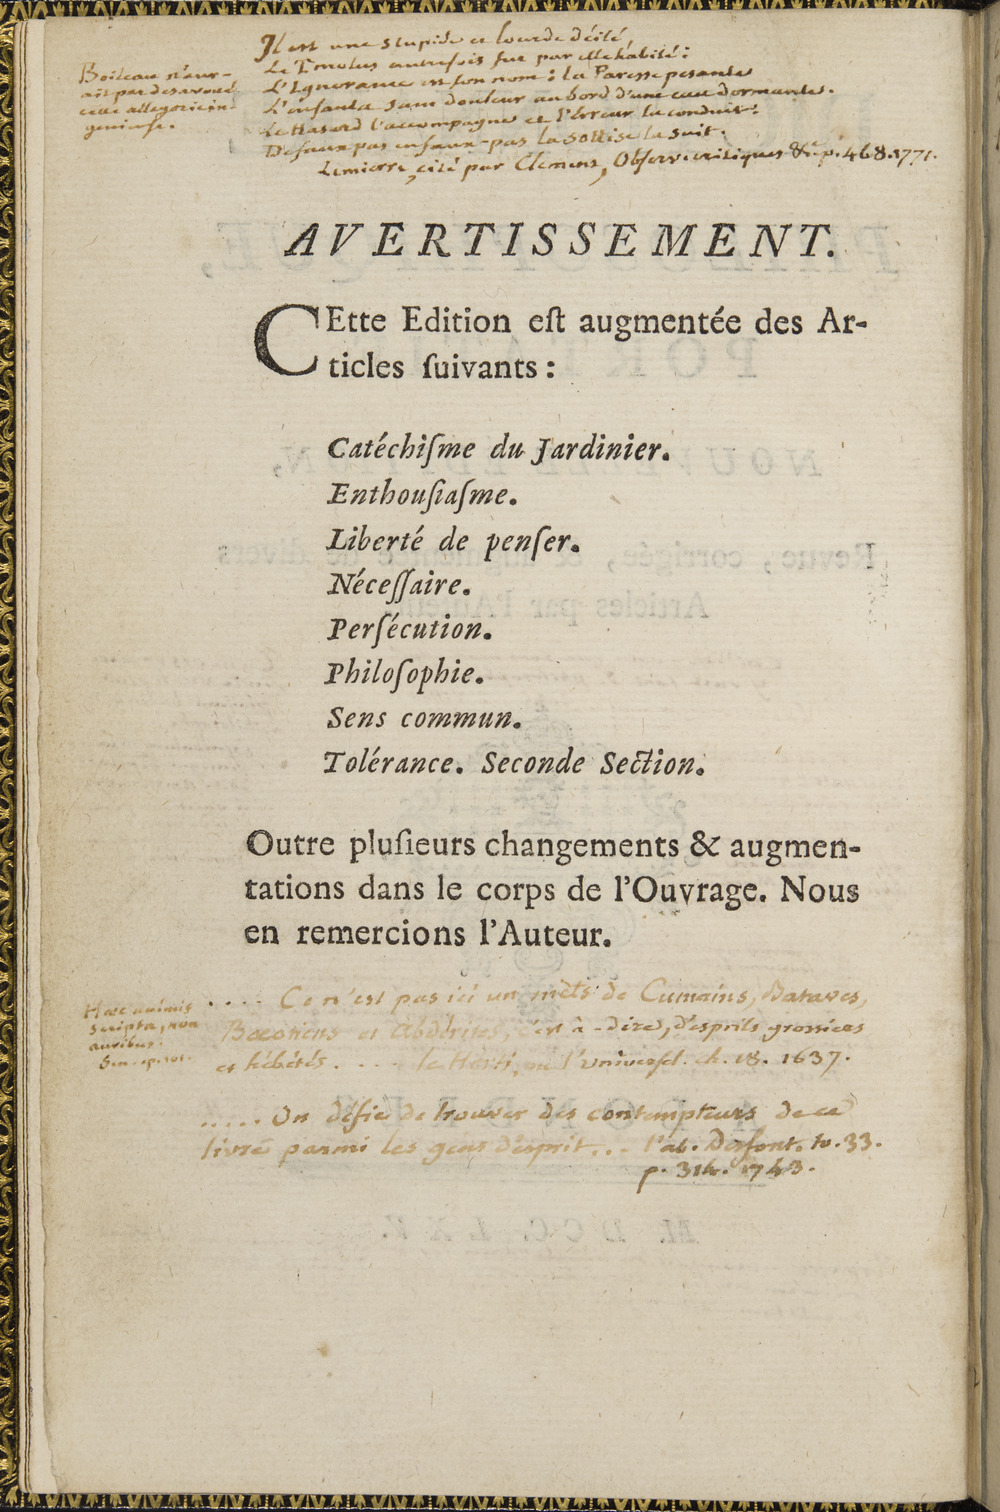 Il est une stupide et lourde déité,
Le Tmolus autrefois fut par elle habité:
L'Ignorance est son nom: la Paresse pesante
L'enfanta sans douleur au bord d'une eau dormante.
Le Hasard l'accompagne et l'Erreur la conduit:
De faux-pas en faux-pas la Sottise la suit.
Lemierre, cité par Clement, Observ. critiques &c. p. 468. 1771.
Boileau n'aur-
ait pas desavoué
cette allegorie in-
genieuse.
AVERTISSEMENT.
CEtte Edition eſt augmentée des Ar-
ticles ſuivants :
Catéchiſme du Jardinier.
Enthouſiaſme.
Liberté de penſer.
Néceſſaire.
Perſécution.
Philoſophie.
Sens commun.
Tolérance. Seconde Section.
Outre pluſieurs changements & augmen-
tations dans le corps de l'Ouvrage. Nous
en remercions l'Auteur.
Haec animis
scripta, non
auribus.
Sen. ep. 101.
.... Ce n'est pas ici un mèts de Cumains, Bataves,
Bœotiens et Abderites, c'est à-dire, d'esprits grossiers
et hébétés. . . . ou l'Univers. ch. 18. 1637.
..... On défie de trouver des contempteurs de ce
livre parmi les gens d'esprit... l'ab. Desfont. to. 33.
p. 314. 1743.